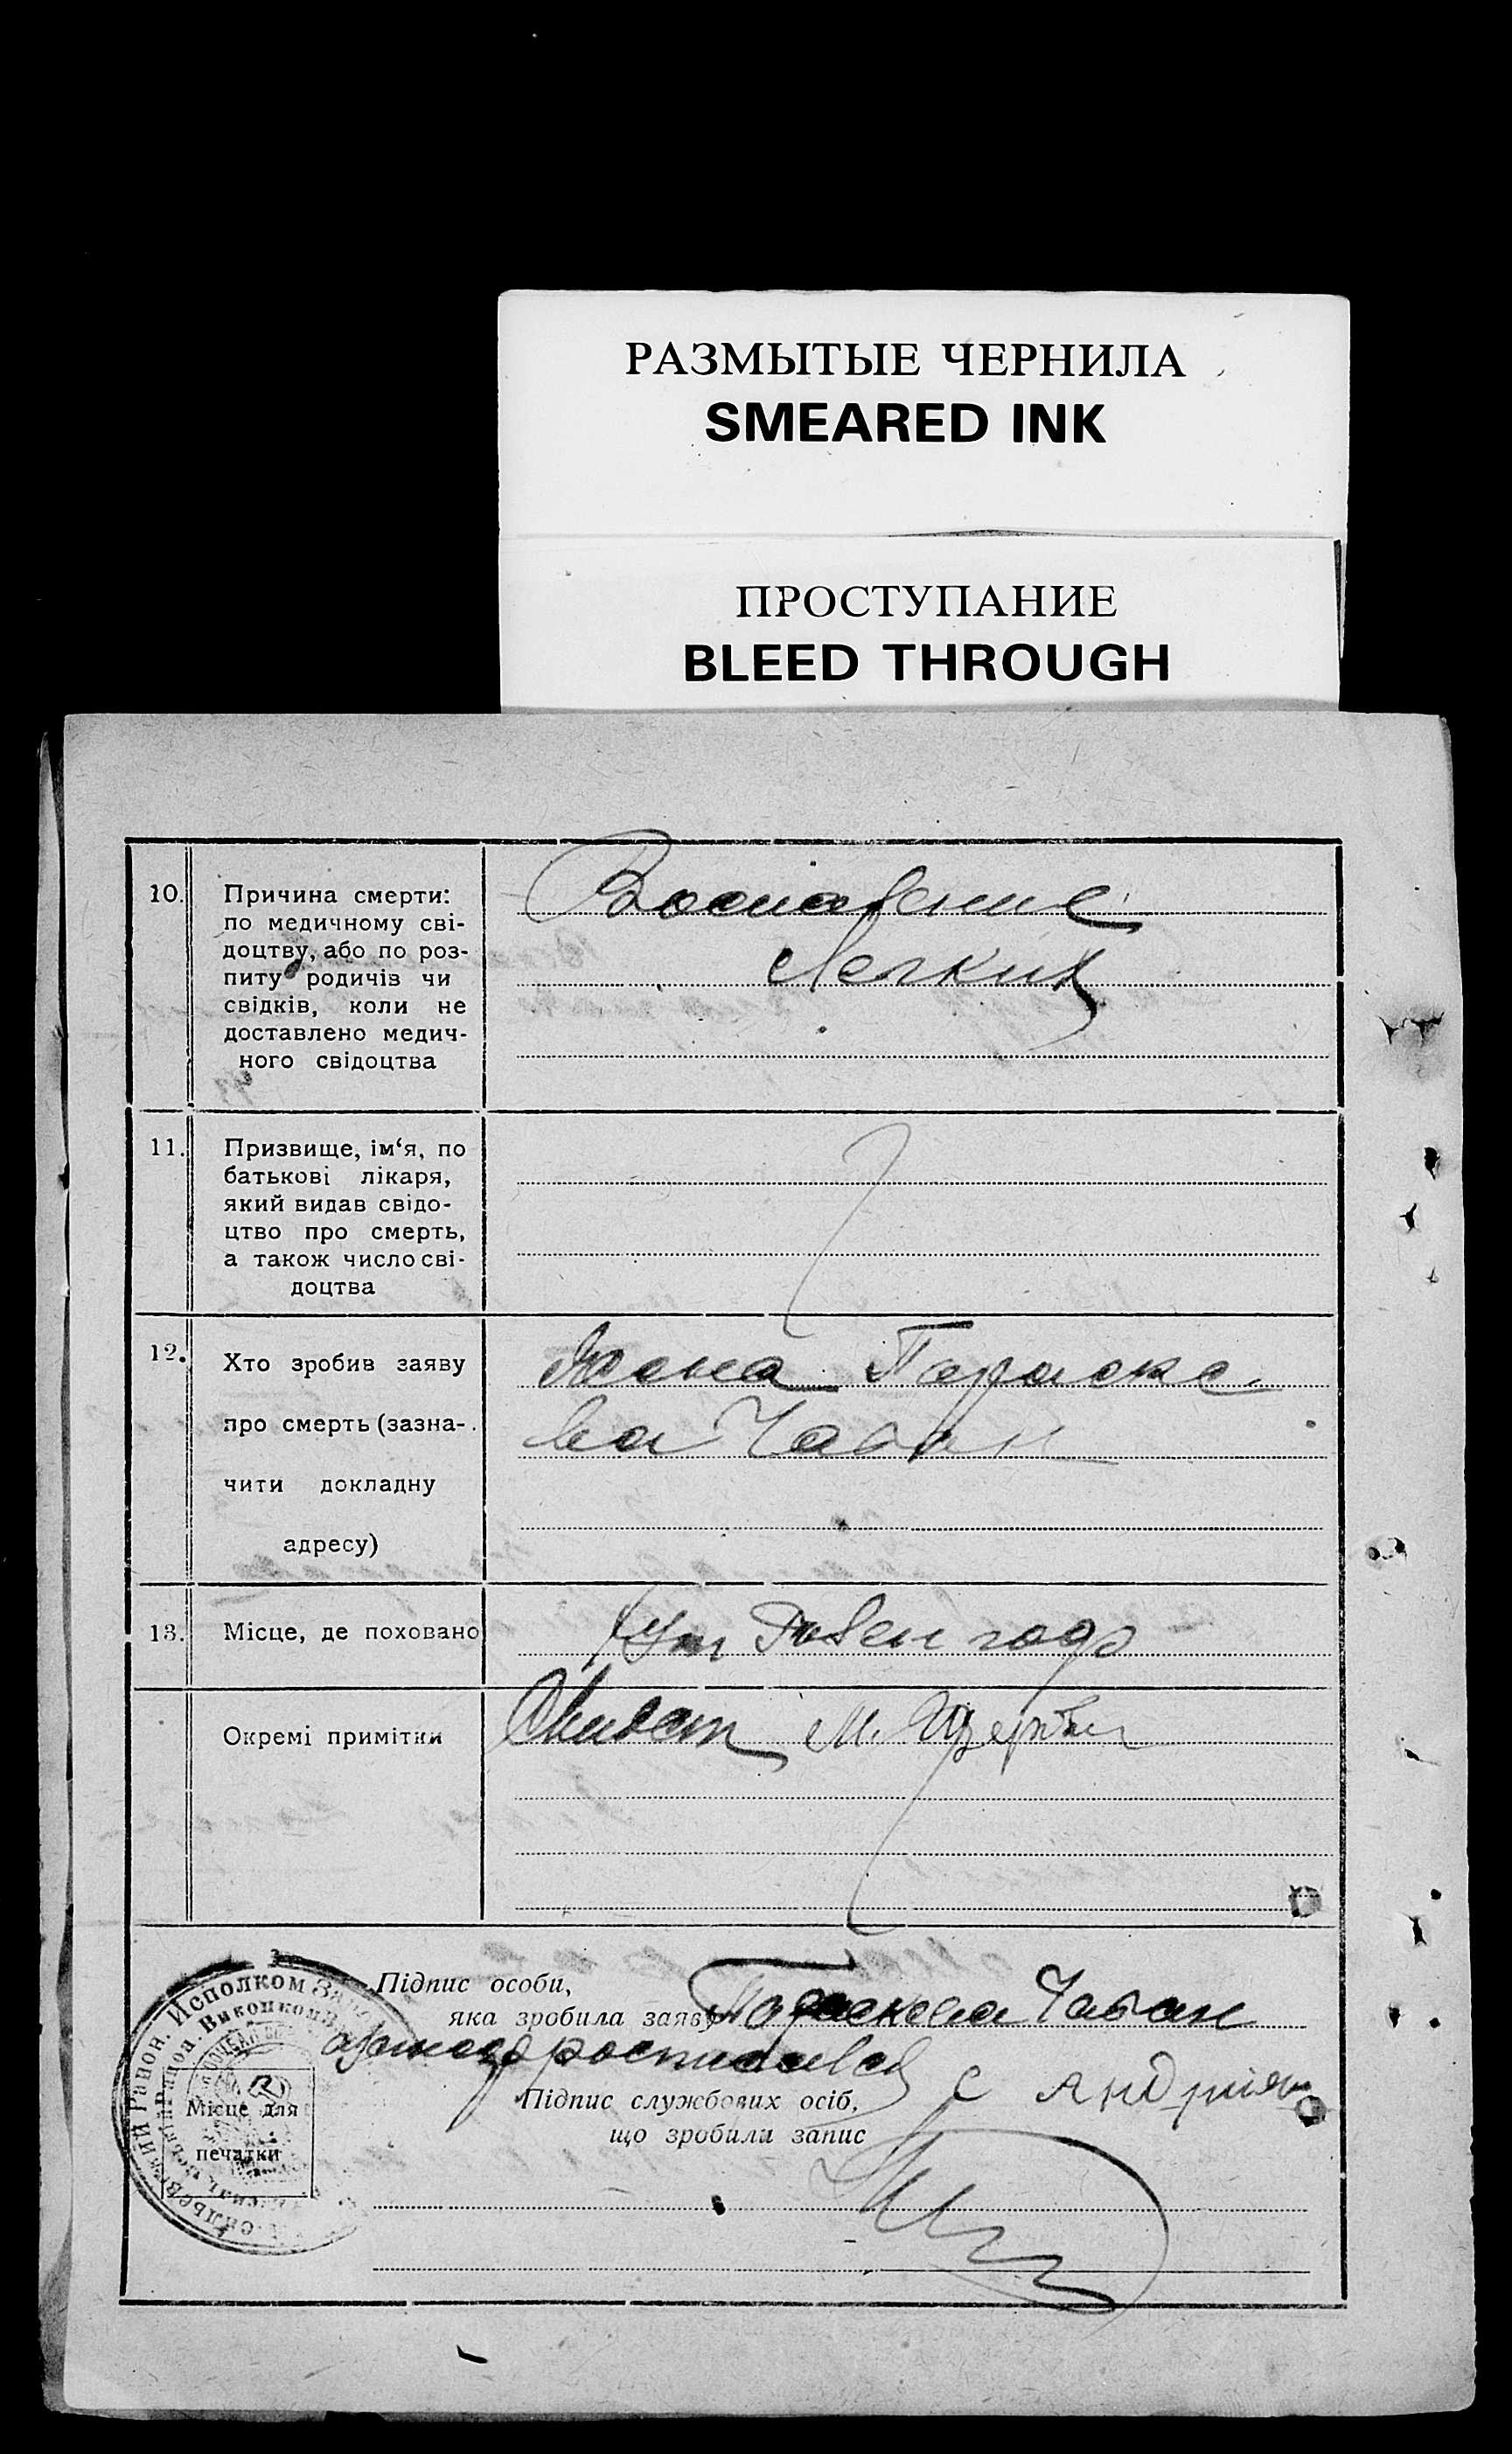 РАЗМЫТЫЕ ЧЕРНИЛА
SMEARED INK
ПРОСТУПАНИЕ
BLEED THROUGH
10. Причина смерти:
по медичному сві-
доцтву, або по роз-
питу родичів чи
свідків, коли не
доставлено медич-
ного свідоцтва
Воспаление
Легких
11. Призвище, ім‘я, по
батькові лікаря,
який видав свідо-
цтво про смерть,
а також число сві-
доцтва
12. Хто зробив заяву
про смерть (зазна-
чити докладну
адресу)
Жена Параске
ва Чабан
13. Місце, де поховано
Окремі примітки
М.
Підпис особи,
яка зробила заяву
Параскева Чабан
Підпис службових осіб,
що зробили запис
Район. Исполком
Місце для
печатки